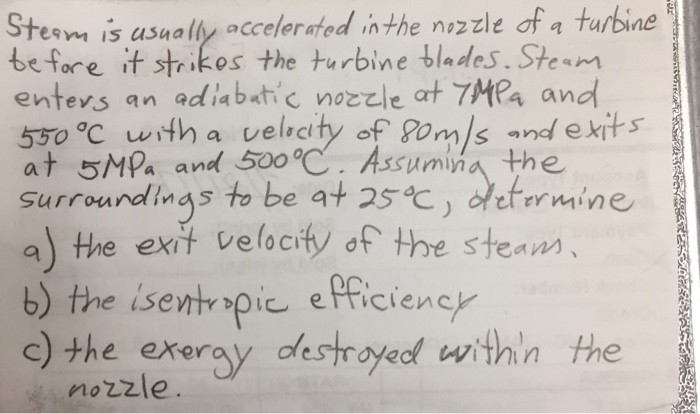 Steam is usually accelerated in the nozzle of a turbine
before it strikes the turbine blades. Steam
enters an adiabatic nozzle at 7MPa and
550°C with a velocity of 80m/s and exits
at 5MPa and 500°C. Assuming the
surroundings to be at 25°C, determine
a) the exit velocity of the steam.
b) the isentropic efficiency
c) the exergy destroyed within the
nozzle.